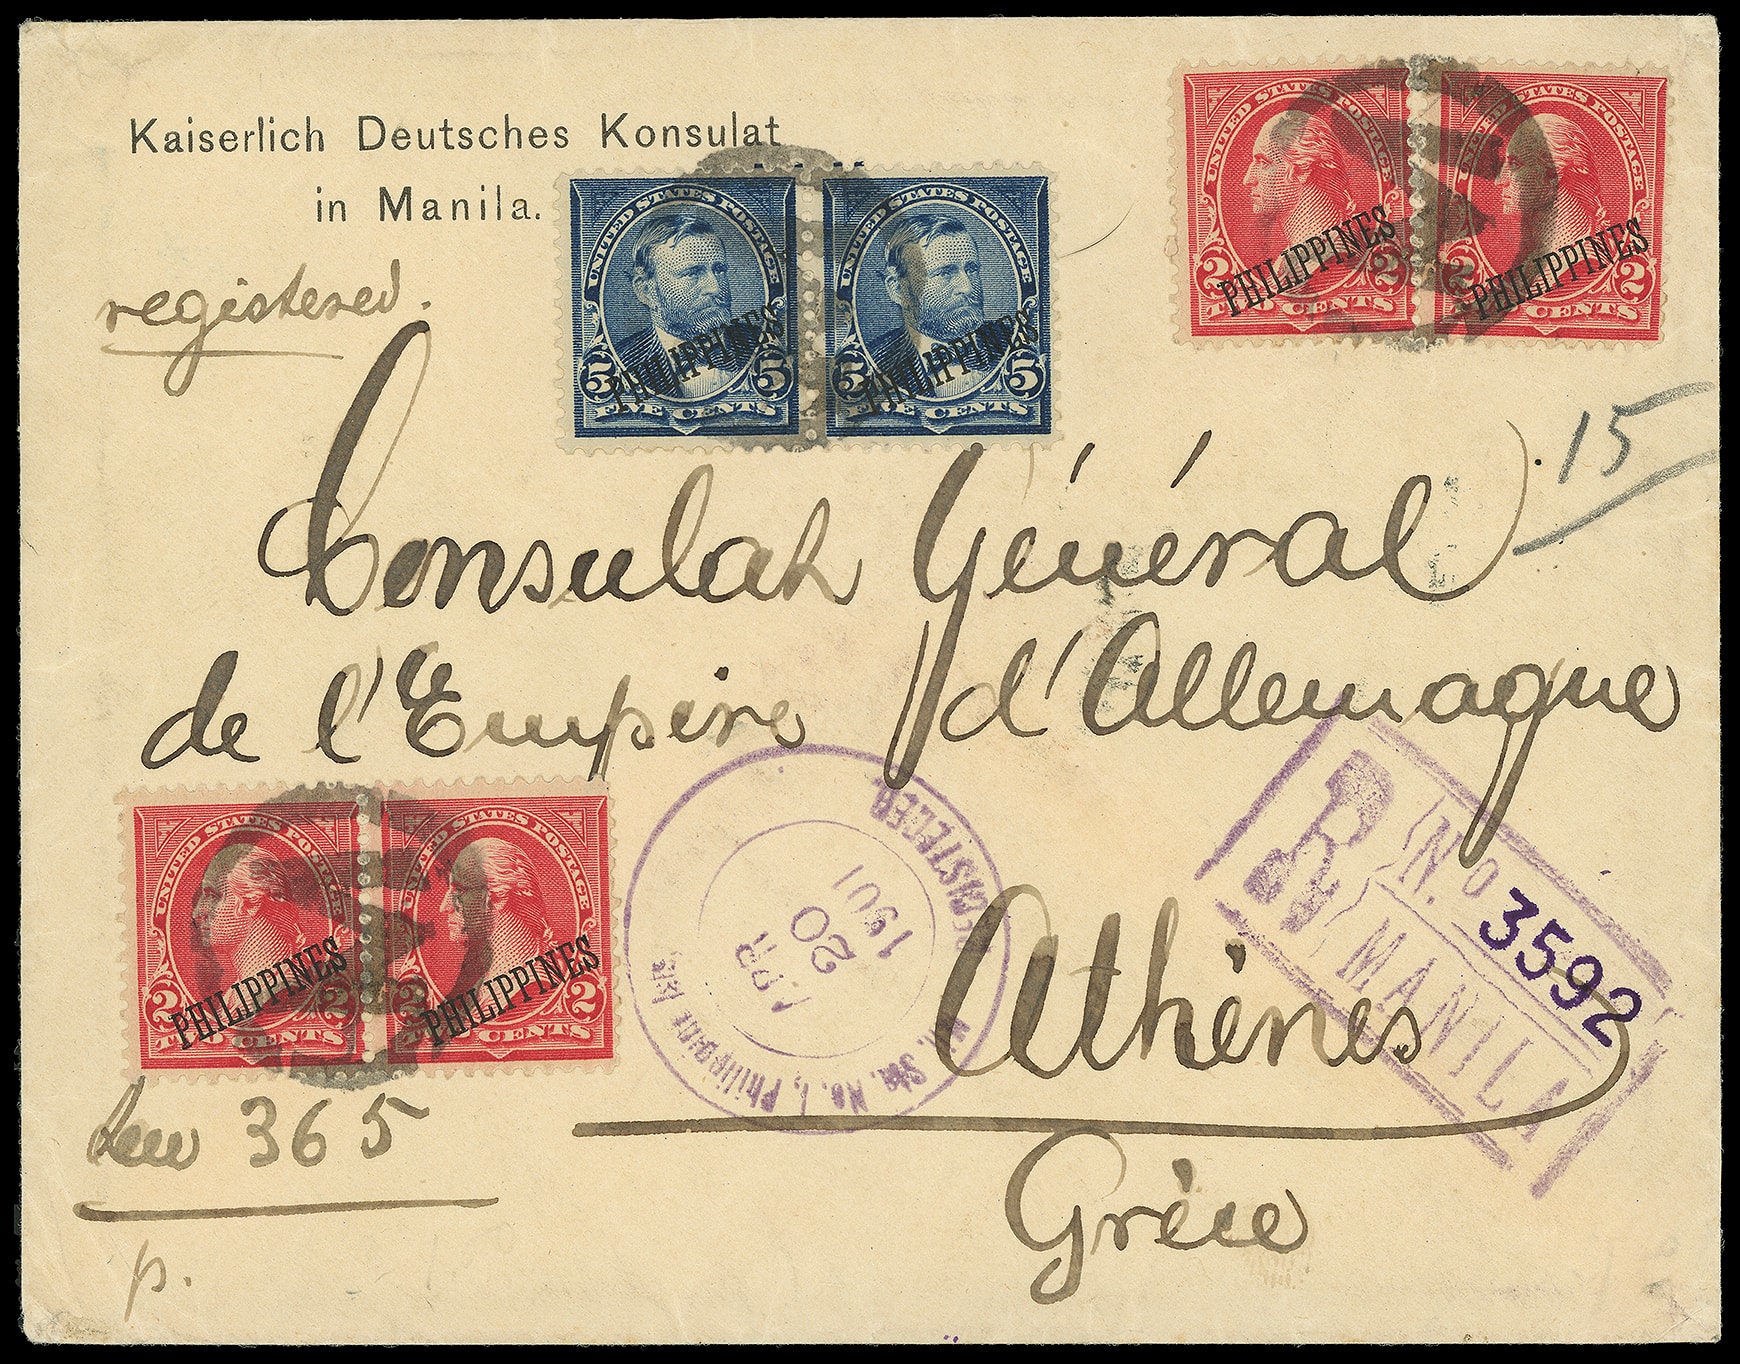 Kaiserlich Deutsches Konsulat
in Manila.
registered.
UNITED STATES POSTAGE
PHILIPPINES
5 5
FIVE CENTS
UNITED STATES POSTAGE
PHILIPPINES
5 5
FIVE CENTS
UNITED STATES POSTAGE
PHILIPPINES
2 2
TWO CENTS
UNITED STATES POSTAGE
PHILIPPINES
2 2
TWO CENTS
15
Consulat Général
de l'Empire d'Allemagne
Athènes
Grèce
UNITED STATES POSTAGE
PHILIPPINES
2 2
TWO CENTS
UNITED STATES POSTAGE
PHILIPPINES
2 2
TWO CENTS
REGISTERED
APR
20
1901
Sta. No. 1, Philippine
R No 3592
MANILA
365
p.